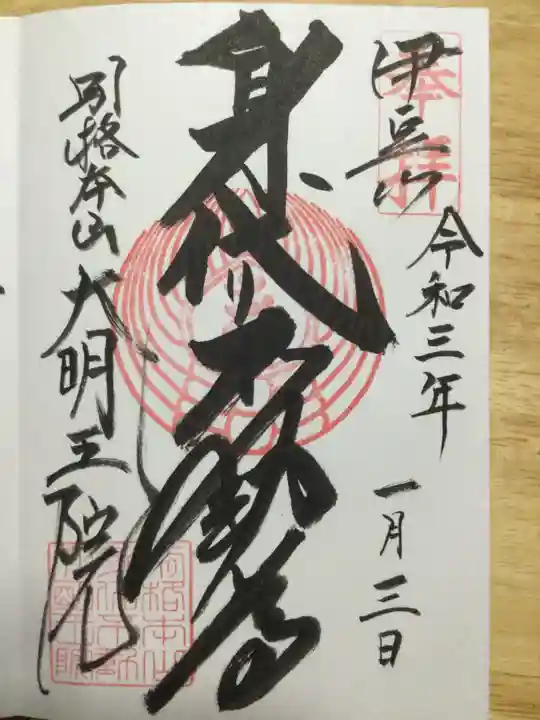 奉拝
伊豆山
令和三年
一月三日
身代り不動尊
別格本山
大明王院